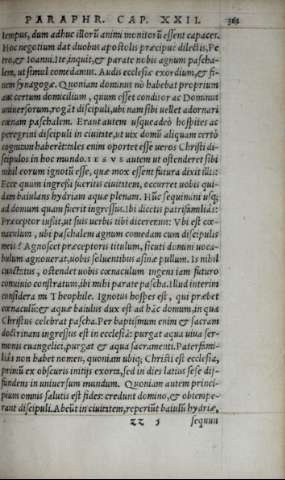 PARAPHR. CAP. XXII. 361
tempus, dum adhuc illorū animi monitorū essent capaces.
Hoc negotium dat duobus apostolis præcipuè dilectis, Pe
tro, & Ioanni. Ite, inquit, & parate nobis agnum pascha-
lem, ut simul comedamus. Audis ecclesiæ exordium, & fi-
nem synagogæ. Quoniam dominus nō habebat proprium
aut certum domicilium, quum esset conditor ac Dominus
uniuersorum, rogāt discipuli, ubi nam sibi uellet adornari
cœnam paschalem. Erant autem usqueadeò hospites ac
peregrini discipuli in ciuitate, ut uix domū aliquam certò
cognitam haberēt: tales enim oportet esse ueros Christi di-
scipulos in hoc mundo. IESVS autem ut ostenderet sibi
nihil eorum ignotū esse, quæ mox essent futura dixit illis:
Ecce quum ingressi fueritis ciuitatem, occurret uobis qui-
dam baiulans hydriam aquæ plenam. Hūc sequimini usq;
ad domum quam fuerit ingressus. Ibi dicetis patrifamiliâs:
Præceptor iussit, ut suis uerbis tibi diceremus: Vbi est cœ-
naculum, ubi paschalem agnum comedam cum discipulis
meis? Agnoscet præceptoris titulum, sicuti domini uoca-
bulum agnouerat, uobis soluentibus asinæ pullum. Is nihil
cunctatus, ostendet uobis cœnaculum ingens iam futuro
conuiuio constratum, ibi mihi parate pascha. Illud interim
considera mi Theophile. Ignotus hospes est, qui præbet
cœnaculū: & aquæ baiulus dux est ad hāc domum, in qua
Christus celebrat pascha. Per baptismum enim & sacram
doctrinam ingressus est in ecclesiā: purgat aqua uiua ser-
monis euangelici, purgat & aqua sacramenti. Paterfami-
liâs non habet nomen, quoniam ubiq; Christi est ecclesia,
primū ex obscuris initijs exorta, sed in dies latius sese dif-
fundens in uniuersum mundum. Quoniam autem princi-
pium omnis salutis est fides: credunt domino, & obtempe-
rant discipuli. Abeūt in ciuitatem, reperiūt baiulū hydriæ,
zz 5 sequun